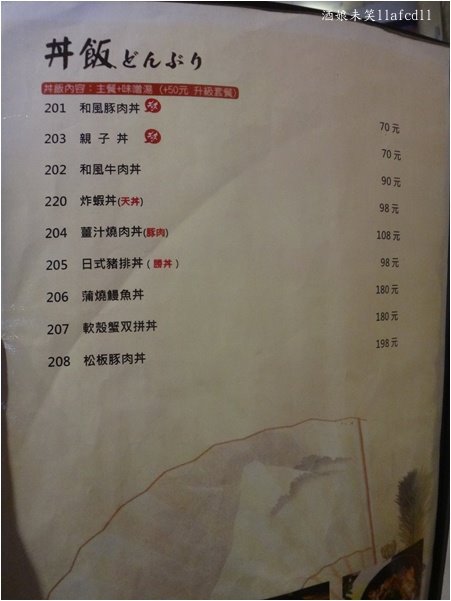 酒娘未笑llafcdll
丼飯どんぶり
丼飯內容：主餐+味噌湯 (+50元 升級套餐)
201 和風豚肉丼 70元
203 親子丼 70元
202 和風牛肉丼 90元
220 炸蝦丼(天丼) 98元
204 薑汁燒肉丼(豚肉) 108元
205 日式豬排丼(勝丼) 98元
206 蒲燒鰻魚丼 180元
207 軟殼蟹双拼丼 180元
208 松板豚肉丼 198元